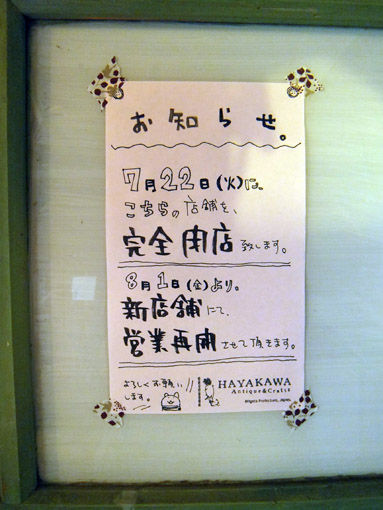 お知らせ。
7月22日(火)に、
こちらの店舗を、
完全閉店致します。
8月1日(金)より。
新店舗にて、
営業再開させて頂きます。
よろしくお願い
します。
HAYAKAWA
Antique & Crafts
Niigata Prefecture, Japan.